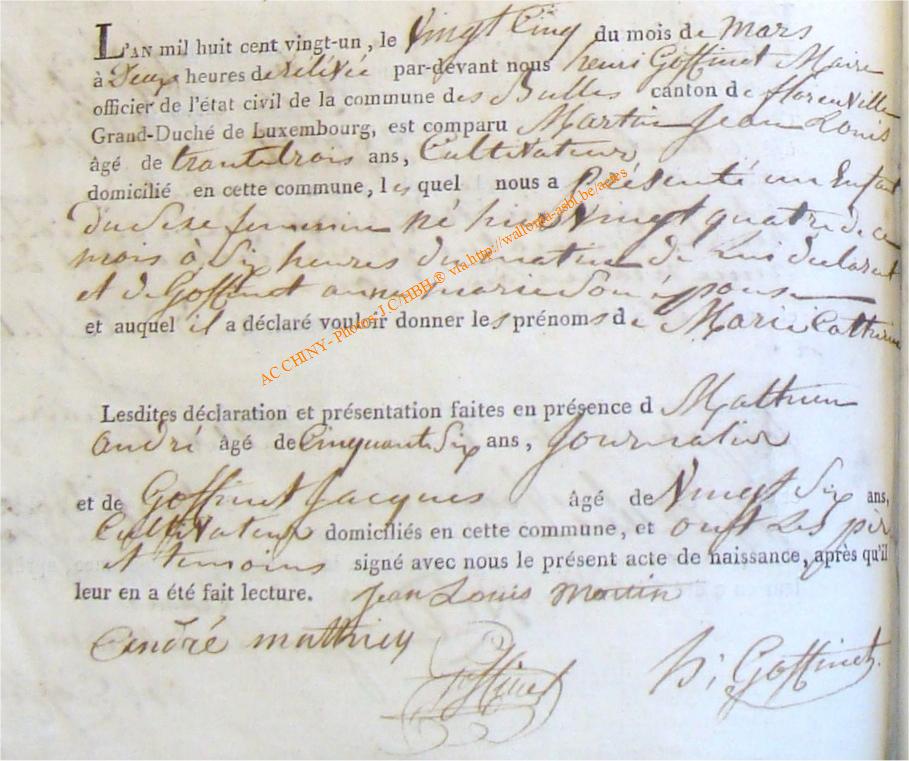 L'AN mil huit cent vingt-un, le Vingt Cinq du mois de mars
à Deux heures de rélévée par-devant nous henri Goffinet Maire
officier de l'état civil de la commune des Bulles canton de florenville
Grand-Duché de Luxembourg, est comparu Martin Jean Louis
âgé de trantetrois ans, Cultivateur
domicilié en cette commune, les quel nous a Présenté un Enfant
Du Sexe feminin né hier Vingt quatre de ce
mois à Six heures du matin de Lui declarant
et de Goffinet anne marie Son épouse
et auquel il a déclaré vouloir donner les prénoms de Marie Catherine
AC CHINY - Photos J.C/HBH.® via http://wallonia-asbl.be/actes
Lesdites déclaration et présentation faites en présence d Mathieu
andré âgé de Cinquante Six ans, Journalier
et de Goffinet Jacques âgé de Vingt Six ans,
Cultivateur domiciliés en cette commune, et ont Les pére
et temoins signé avec nous le présent acte de naissance, après qu'il
leur en a été fait lecture. jean Louis martin
André mathieu
Goffinet
h; Goffinet.